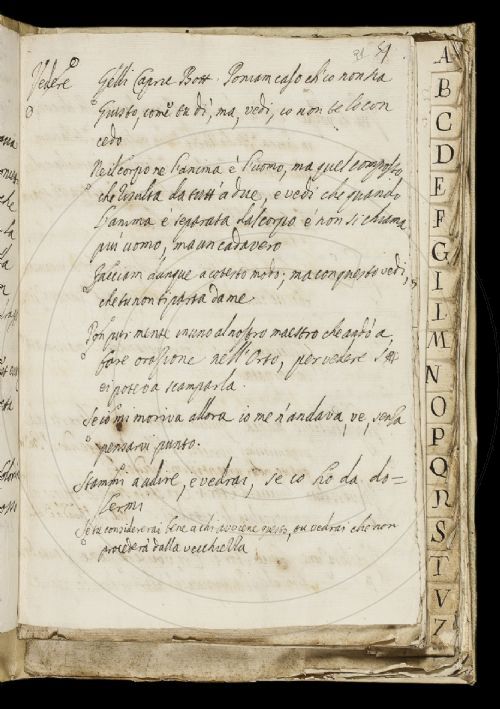 51
Vedere
Gelli Capric Bott. Poniam caso ch'io non sia
Giusto, come tu di, ma, vedi, io non te lo con
cedo
Ne il corpo ne l'anima è l'uomo, ma quel composto,
che risulta da tutt'a due, e vedi che quando
l'anima è separata dal corpo è non si chiama
piu uomo, ma un cadavero
Facciam dunque a cotesto modo; ma con questo vedi,
che tu non ti parta da me
Pon pur mente insino al nostro maestro che andò a
fare orazione nell'Orto, per vedere s'
ei poteva scamparla.
Se io mi moriva allora io me n'andava, ve, senza
pensarvi punto.
Stammi a udire, e vedrai, se io ho da do=
lermi
Se tu considererai bene a chi avviene questo, tu vedrai che non
procederà dalla vecchiezza
A
B
C
D
E
F
G
I
L
M
N
O
P
Q
R
S
T
V
Z